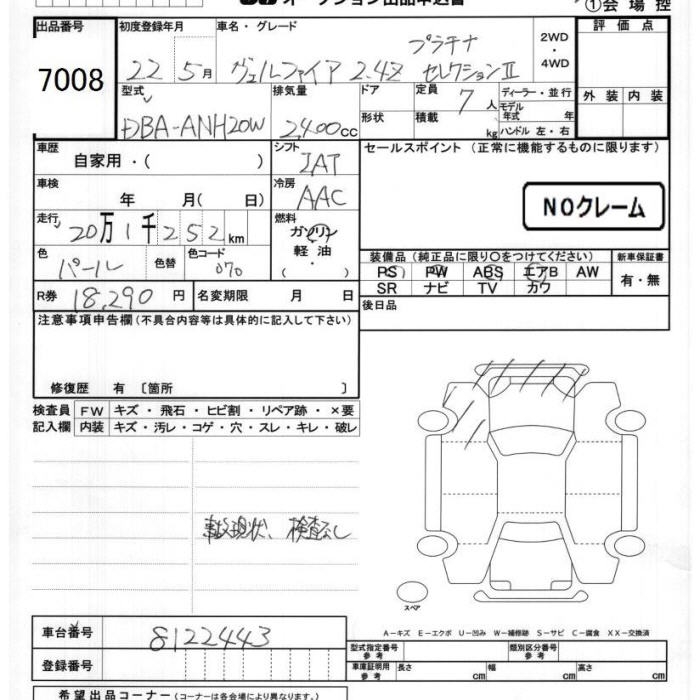 オークション出品申込書
①会場控
出品番号 初度登録年月 車名・グレード 評価点
7008
22 5月 ヴェルファイア 2.4Z プラチナ セレクションⅡ 2WD ・ 4WD
型式 排気量 ドア 定員 7人 ディーラー・並行 外装 内装
DBA-ANH20W 2400cc 形状 積載 kg モデル年式 年
ハンドル 左・右
車歴 シフト セールスポイント (正常に機能するものに限ります)
自家用・( ) IAT
車検 冷房
年 月( 日) AAC
NOクレーム
走行 燃料
20万1千252km ガソリン
軽油
( ・ )
色 色替 色コード
パール 070
装備品 (純正品に限り○をつけてください) 新車保証書
PS PW ABS エアB AW 有・無
SR ナビ TV カワ
R券 18,290円 名変期限 月 日 後日品
注意事項申告欄 (不具合内容等は具体的に記入して下さい)
修復歴 有 〔箇所 〕
検査員 FW キズ・飛石・ヒビ割・リペア跡・×要
記入欄 内装 キズ・汚レ・コゲ・穴・スレ・キレ・破レ
事故現状、検査なし
スペア
A-キズ E-エクボ U-凹み W-補修跡 S-サビ C-腐食 XX-交換済
車台番号 8122443
型式指定番号 参考 類別区分番号 参考
登録番号
車庫証明用 参考 長さ cm 幅 cm 高さ cm
希望出品コーナー (コーナーは各会場により異なります。)